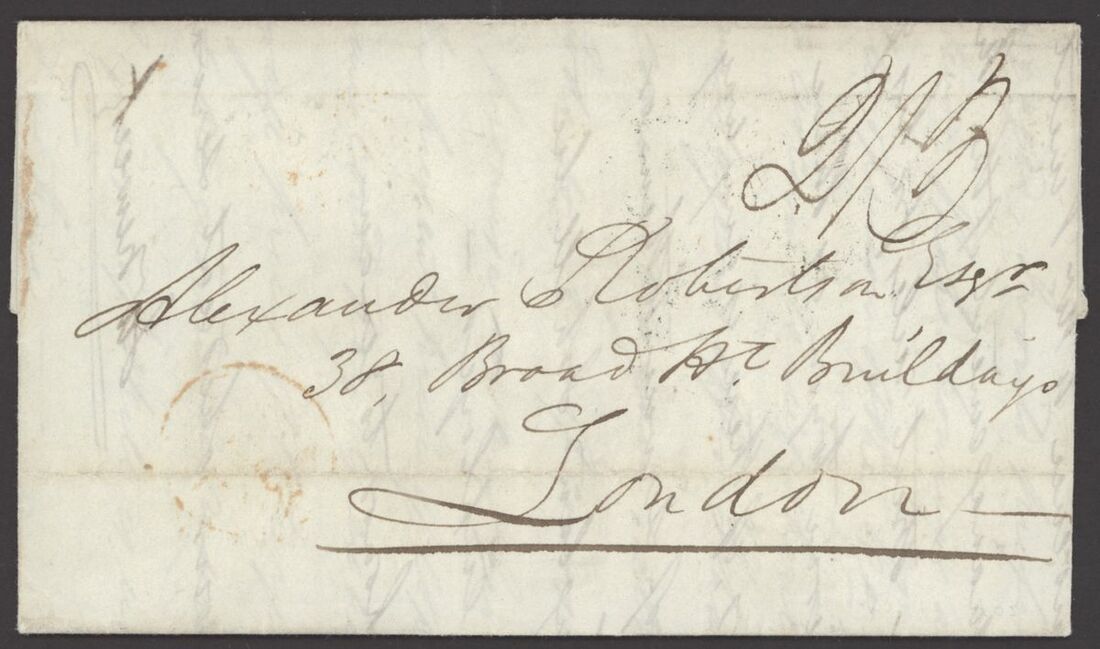 2/3
Alexander Robertson Esqr
38, Broad St. Buildings
London